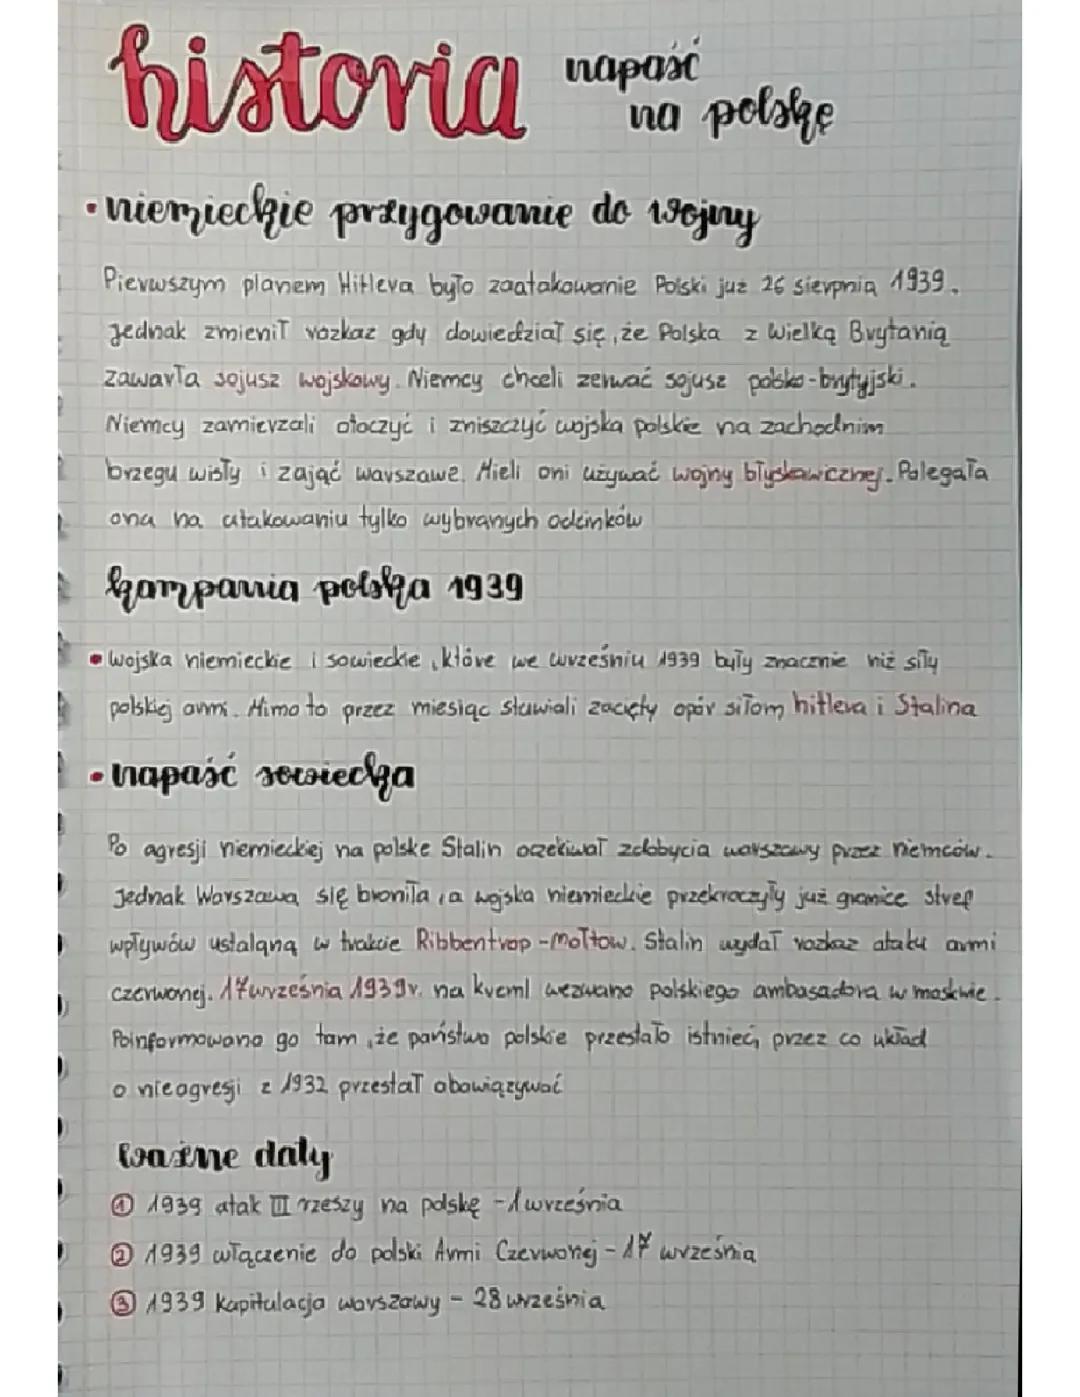 historia napaść
na polskę
• niemieckie przygowanie do wojny
Pierwszym planem Hitlera było zaatakowanie Polski już 26 sierpnia 1939.
Jednak zmienił rozkaz gdy dowiedział się, że Polska z Wielką Brytanią
zawarła sojusz wojskowy. Niemcy chceli zerwać sojusz polsko-brytyjski.
Niemcy zamierzali otoczyć i zniszczyć wojska polskie na zachodnim
brzegu wisły i zająć warszawe. Mieli oni używać wojny błyskawicznej. Polegała
ona na atakowaniu tylko wybranych odcinków
kampania polska 1939
• Wojska niemieckie i sowieckie, które we wrześniu 1939 były znacznie niż siły
polskiej armi. Mimo to przez miesiąc stawiali zacięty opór siłom hitlera i Stalina
• napaść sowiecka
Po agresji niemieckiej na polske Stalin oczekiwał zdobycia warszawy przez niemców.
Jednak Warszawa się broniła, a wojska niemieckie przekroczyły już granice stref
wpływów ustaloną w trakcie Ribbentrop-Mołtow. Stalin wydał rozkaz ataku armi
czerwonej. 17 września 1939r. na kreml wezwano polskiego ambasadora w moskwie.
Poinformowano go tam, że państwo polskie przestało istnieć, przez co układ
o nieagresji z 1932 przestał obowiązywać
Ważne daty
① 1939 atak III rzeszy na polskę - 1 września
② 1939 włączenie do polski Armi Czerwonej - 17 września
③ 1939 Kapitulacja warszawy - 28 września